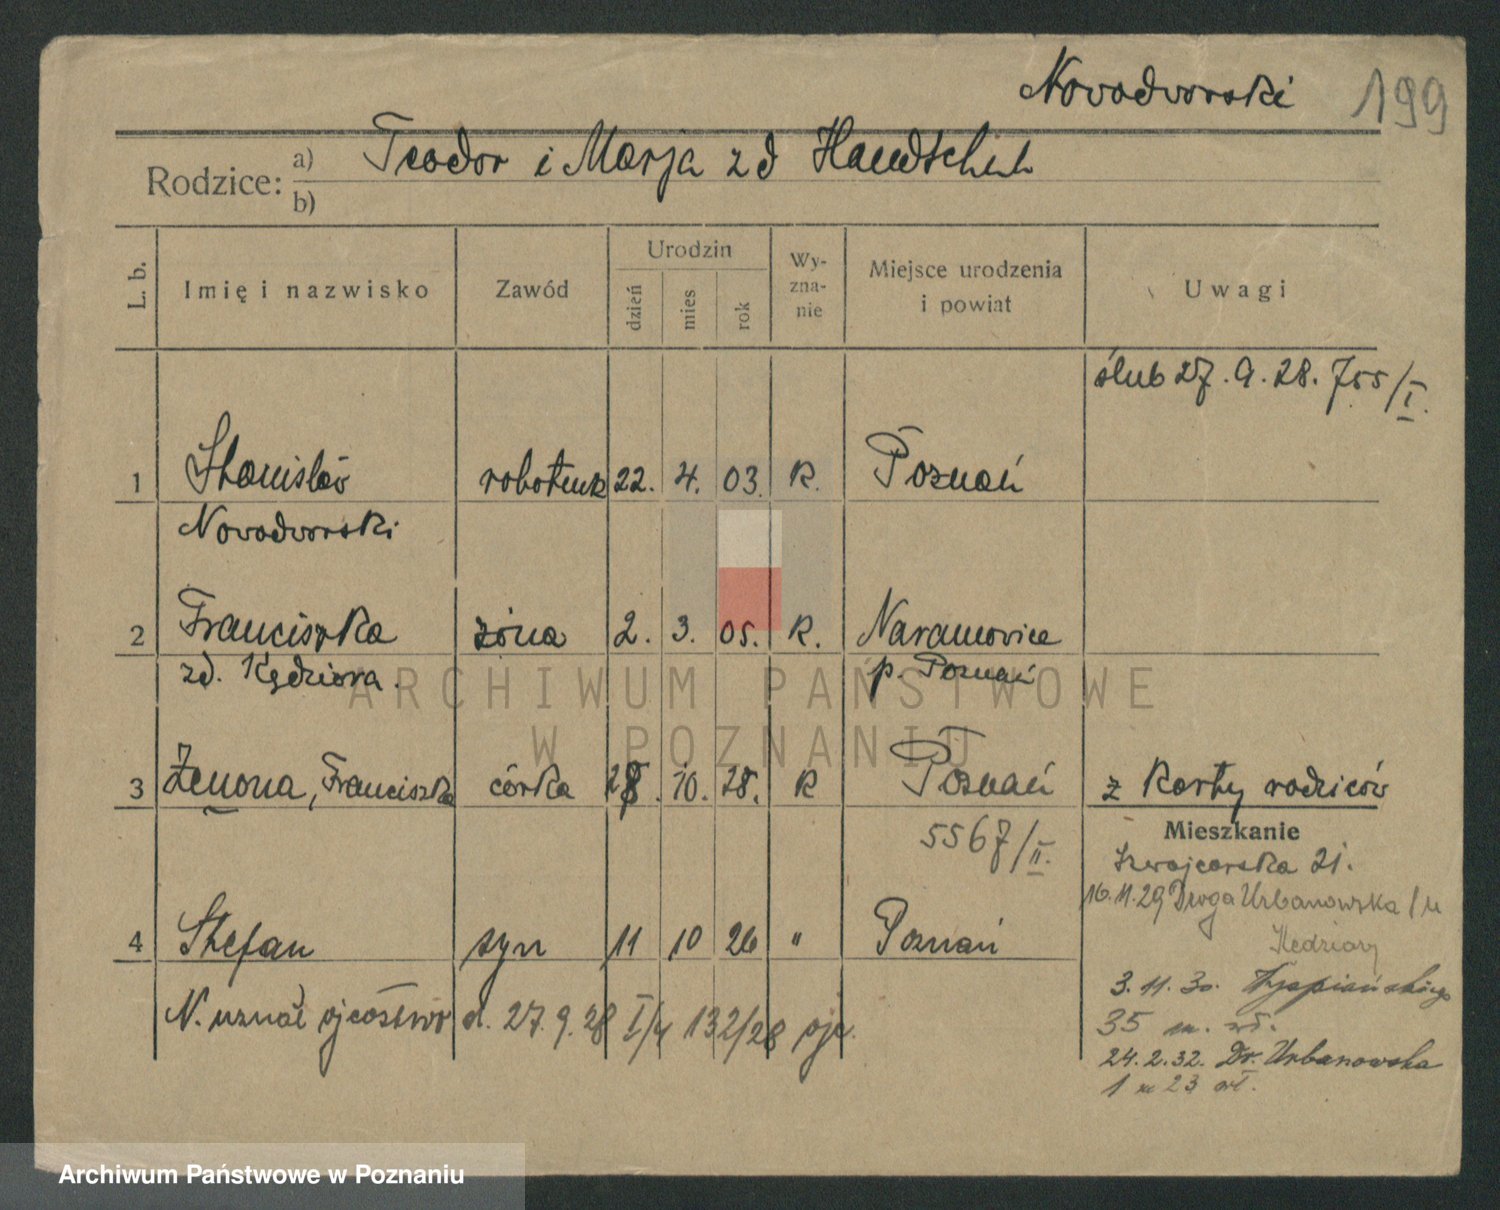 Nowodworski 199
Rodzice: a) Teodor i Marja zd
b)
L. b. Imię i nazwisko Zawód Urodzin dzień mies rok Wy-zna-nie Miejsce urodzenia i powiat Uwagi
ślub 27.9.28. 755/I.
1 Stanisław robotnik 22. 4. 03. R. Poznań
Nowodworski
2 Franciszka żona 2. 3. 05. R. Naramowice
zd. Kędziora. p. Poznań
3 Zenona, Franciszka córka 28. 10. 28. R Poznań z karty rodziców
5567/II.
Mieszkanie
Szwajcarska 21.
16.11.29 Droga Urbanowska
4 Stefan syn 11 10 26 " Poznań
Kędziory
3.11.30. Wyspiańskiego
N. uznał ojcostwo d. 27.9.28 I/4 132/28 ojc.
35 m.
24.2.32. Dr. Urbanowska
1 m 23
ARCHIWUM PAŃSTWOWE
W POZNANIU
Archiwum Państwowe w Poznaniu